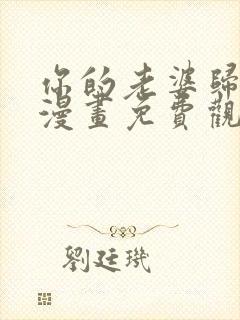 你的老婆歸
漫畫免費觀
劉廷璣